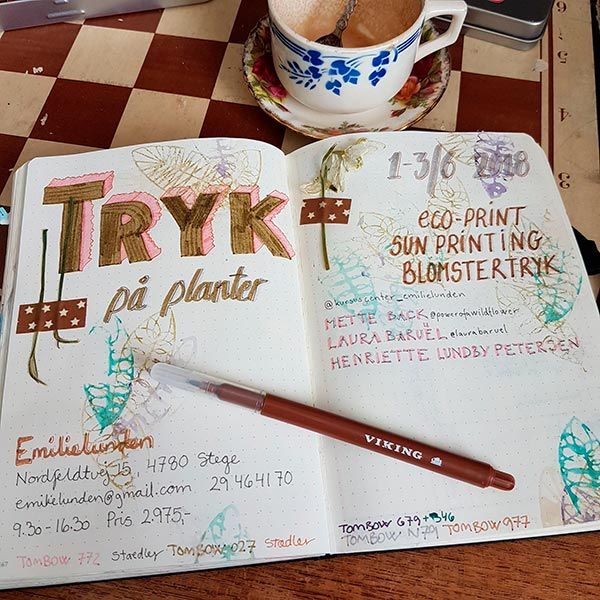 TRYK
på planter
Emilielunden
Nordfeldtvej 15, 4780 Stege
emikelunden@gmail.com 29464170
9.30-16.30 Pris 2.975,-
TOMBOW 772 Staedler TOMBOW 027 Stædler
1-3/6 2018
eco-PRINT
SUN PRINTING
BLOMSTERTRYK
@kursuscenter_emilielunden
METTE BACK @powerofawildflower
LAURA BARUËL @laurabaruel
HENRIETTE LUNDBY PETERSEN
VIKING
TOMBOW 679+346
TOMBOW N79 TOMBOW 977